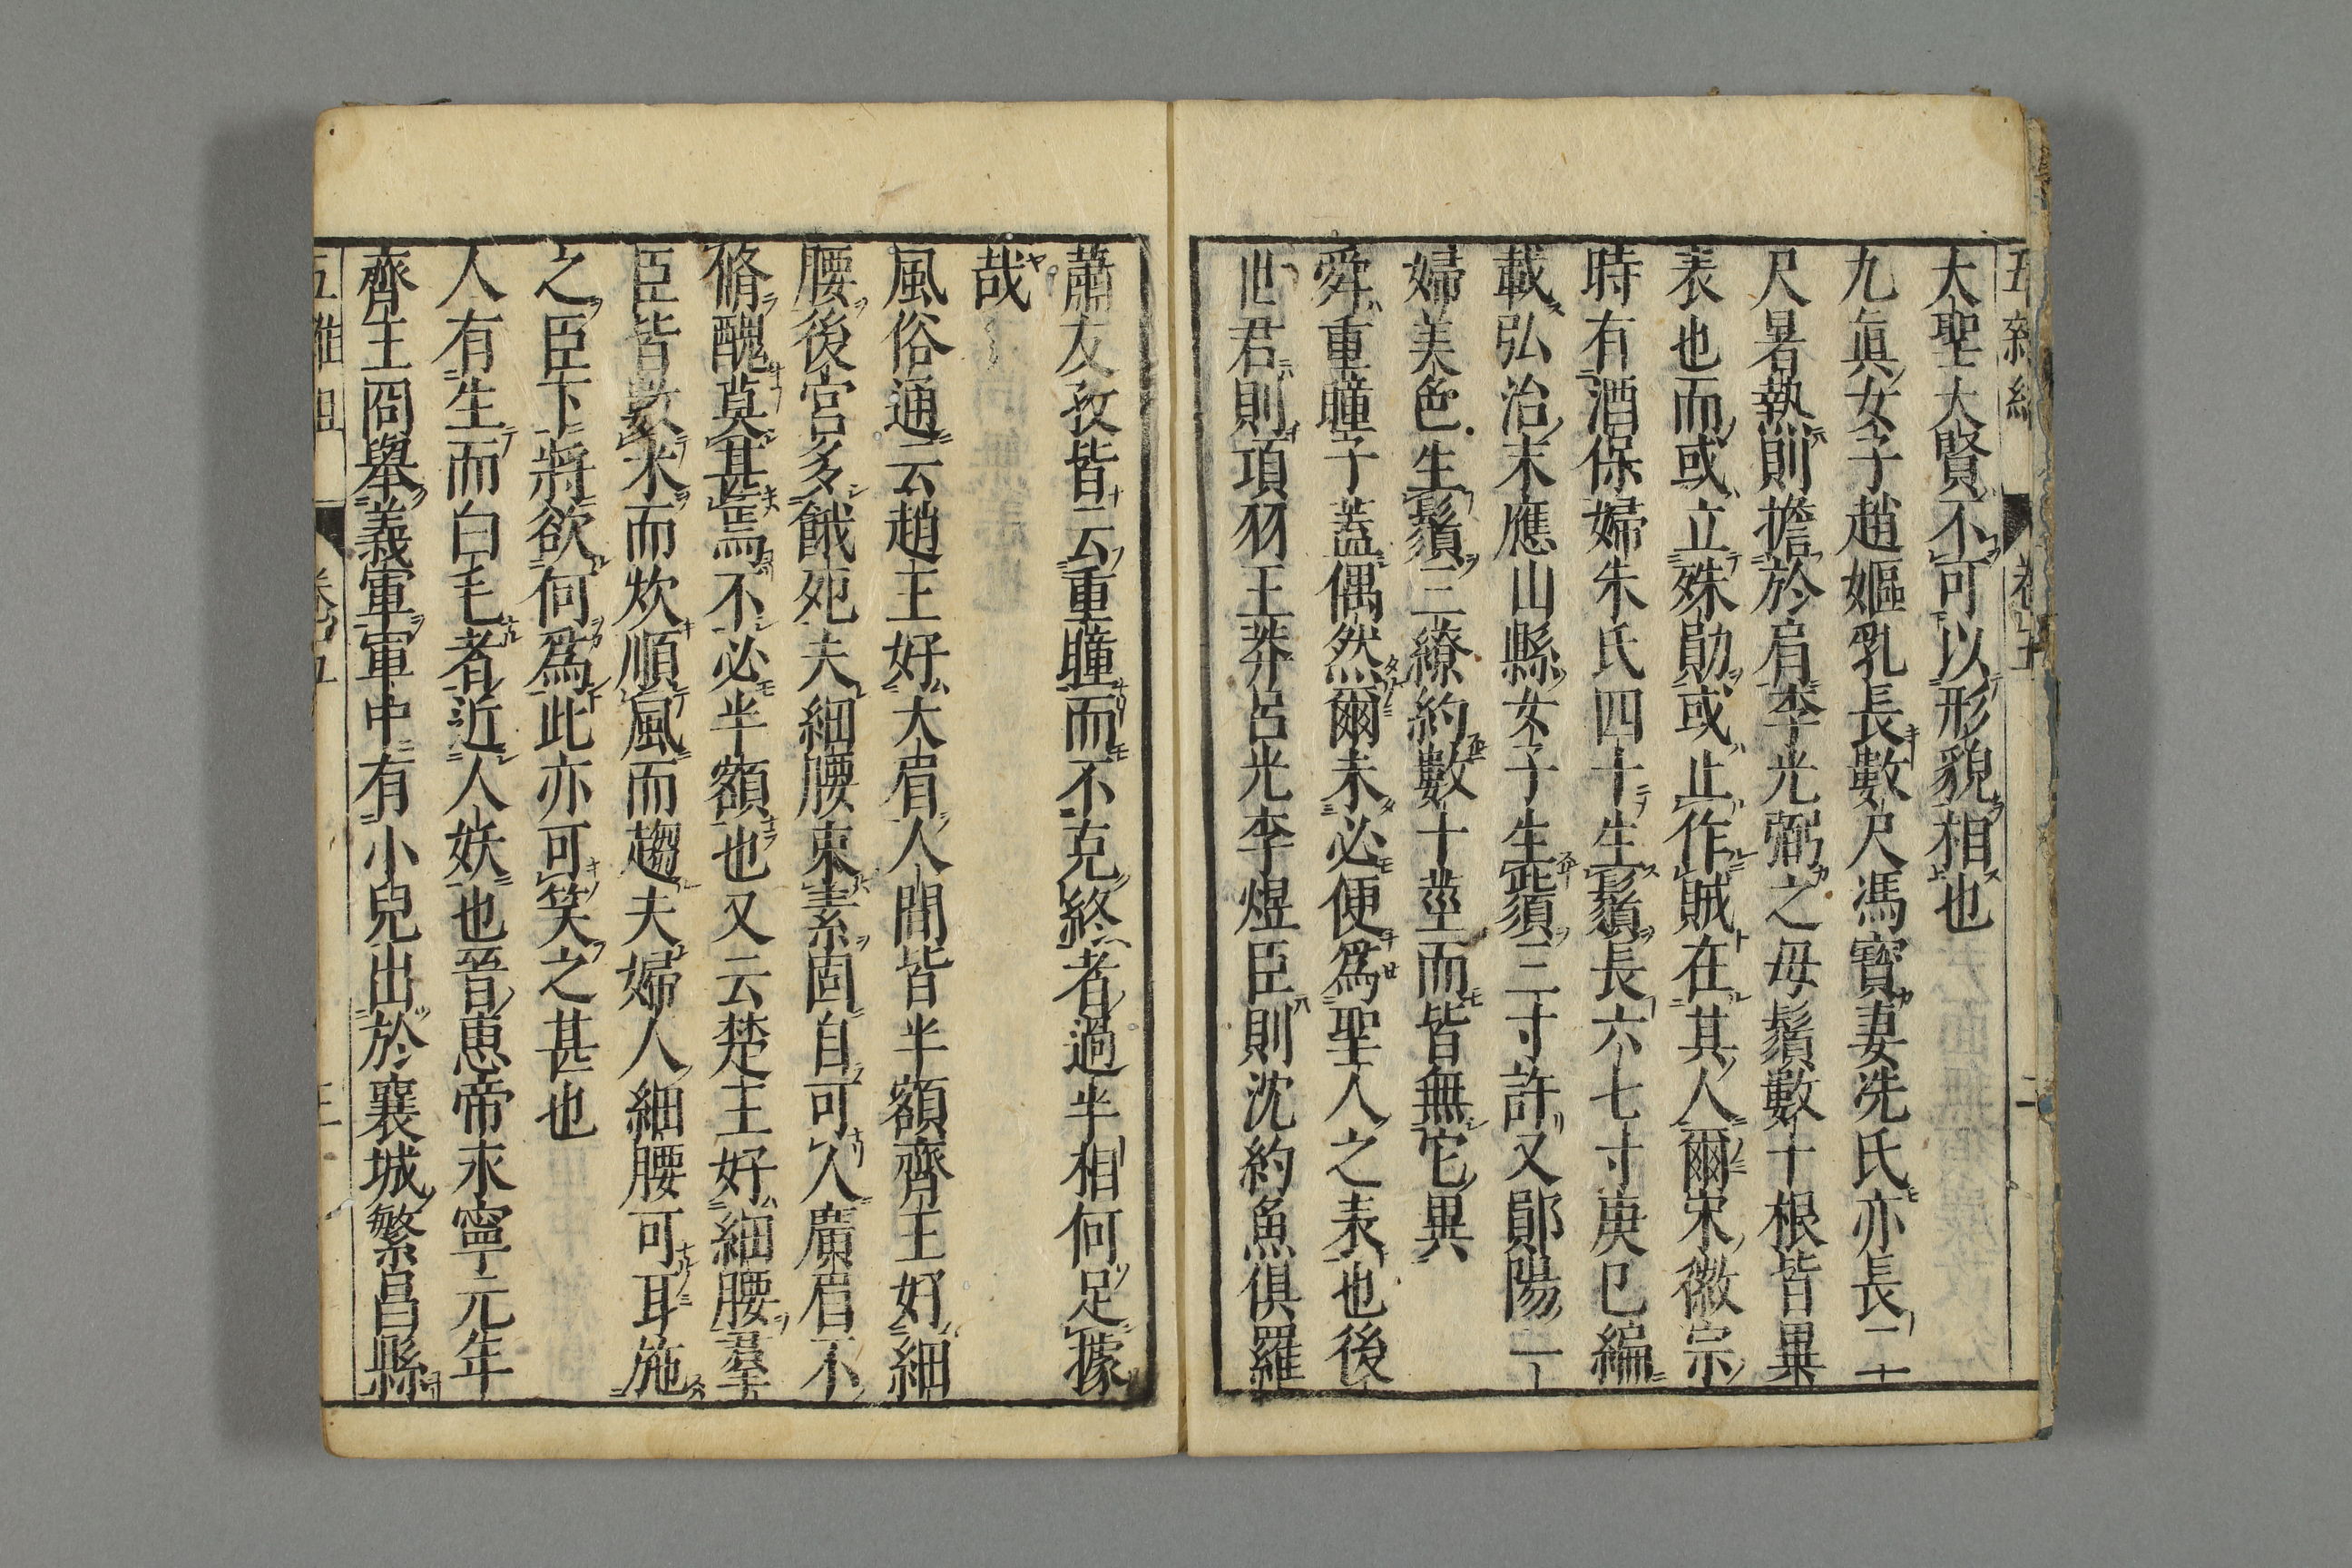 五雜組 卷五 二
大聖大賢不可以形貌相也
九眞女子趙嫗乳長數尺馮寳妻冼氏亦長二十
尺暑熱則擔於肩李光弼之母鬚數十根皆畢
表也而或立殊勛或止作賊在其人爾宋徽宗
時有酒保婦朱氏四十生鬚長六七寸庚巳編
載弘治末應山縣女子生髭鬚三寸許又鄖陽一
婦美色生鬚三繚約數十莖而皆無它異
舜重瞳子蓋偶然爾未必便爲聖人之表也後
世君則項羽王莽呂光李煜臣則沈約魚俱羅
蕭友孜皆云重瞳而不克終者過半相何足據
哉
風俗通云趙王好大眉人間皆半額齊王好細
腰後宮多餓死夫細腰束素固自可人廣眉不
脩醜莫甚焉不必半額也又云楚王好細腰羣
臣皆數米而炊順風而趨夫婦人細腰可耳施
之臣下將欲何爲此亦可笑之甚也
人有生而白毛者近人妖也晉惠帝永寧元年
齊王冏舉義軍軍中有小兒出於襄城繁昌縣
五雜組 卷五